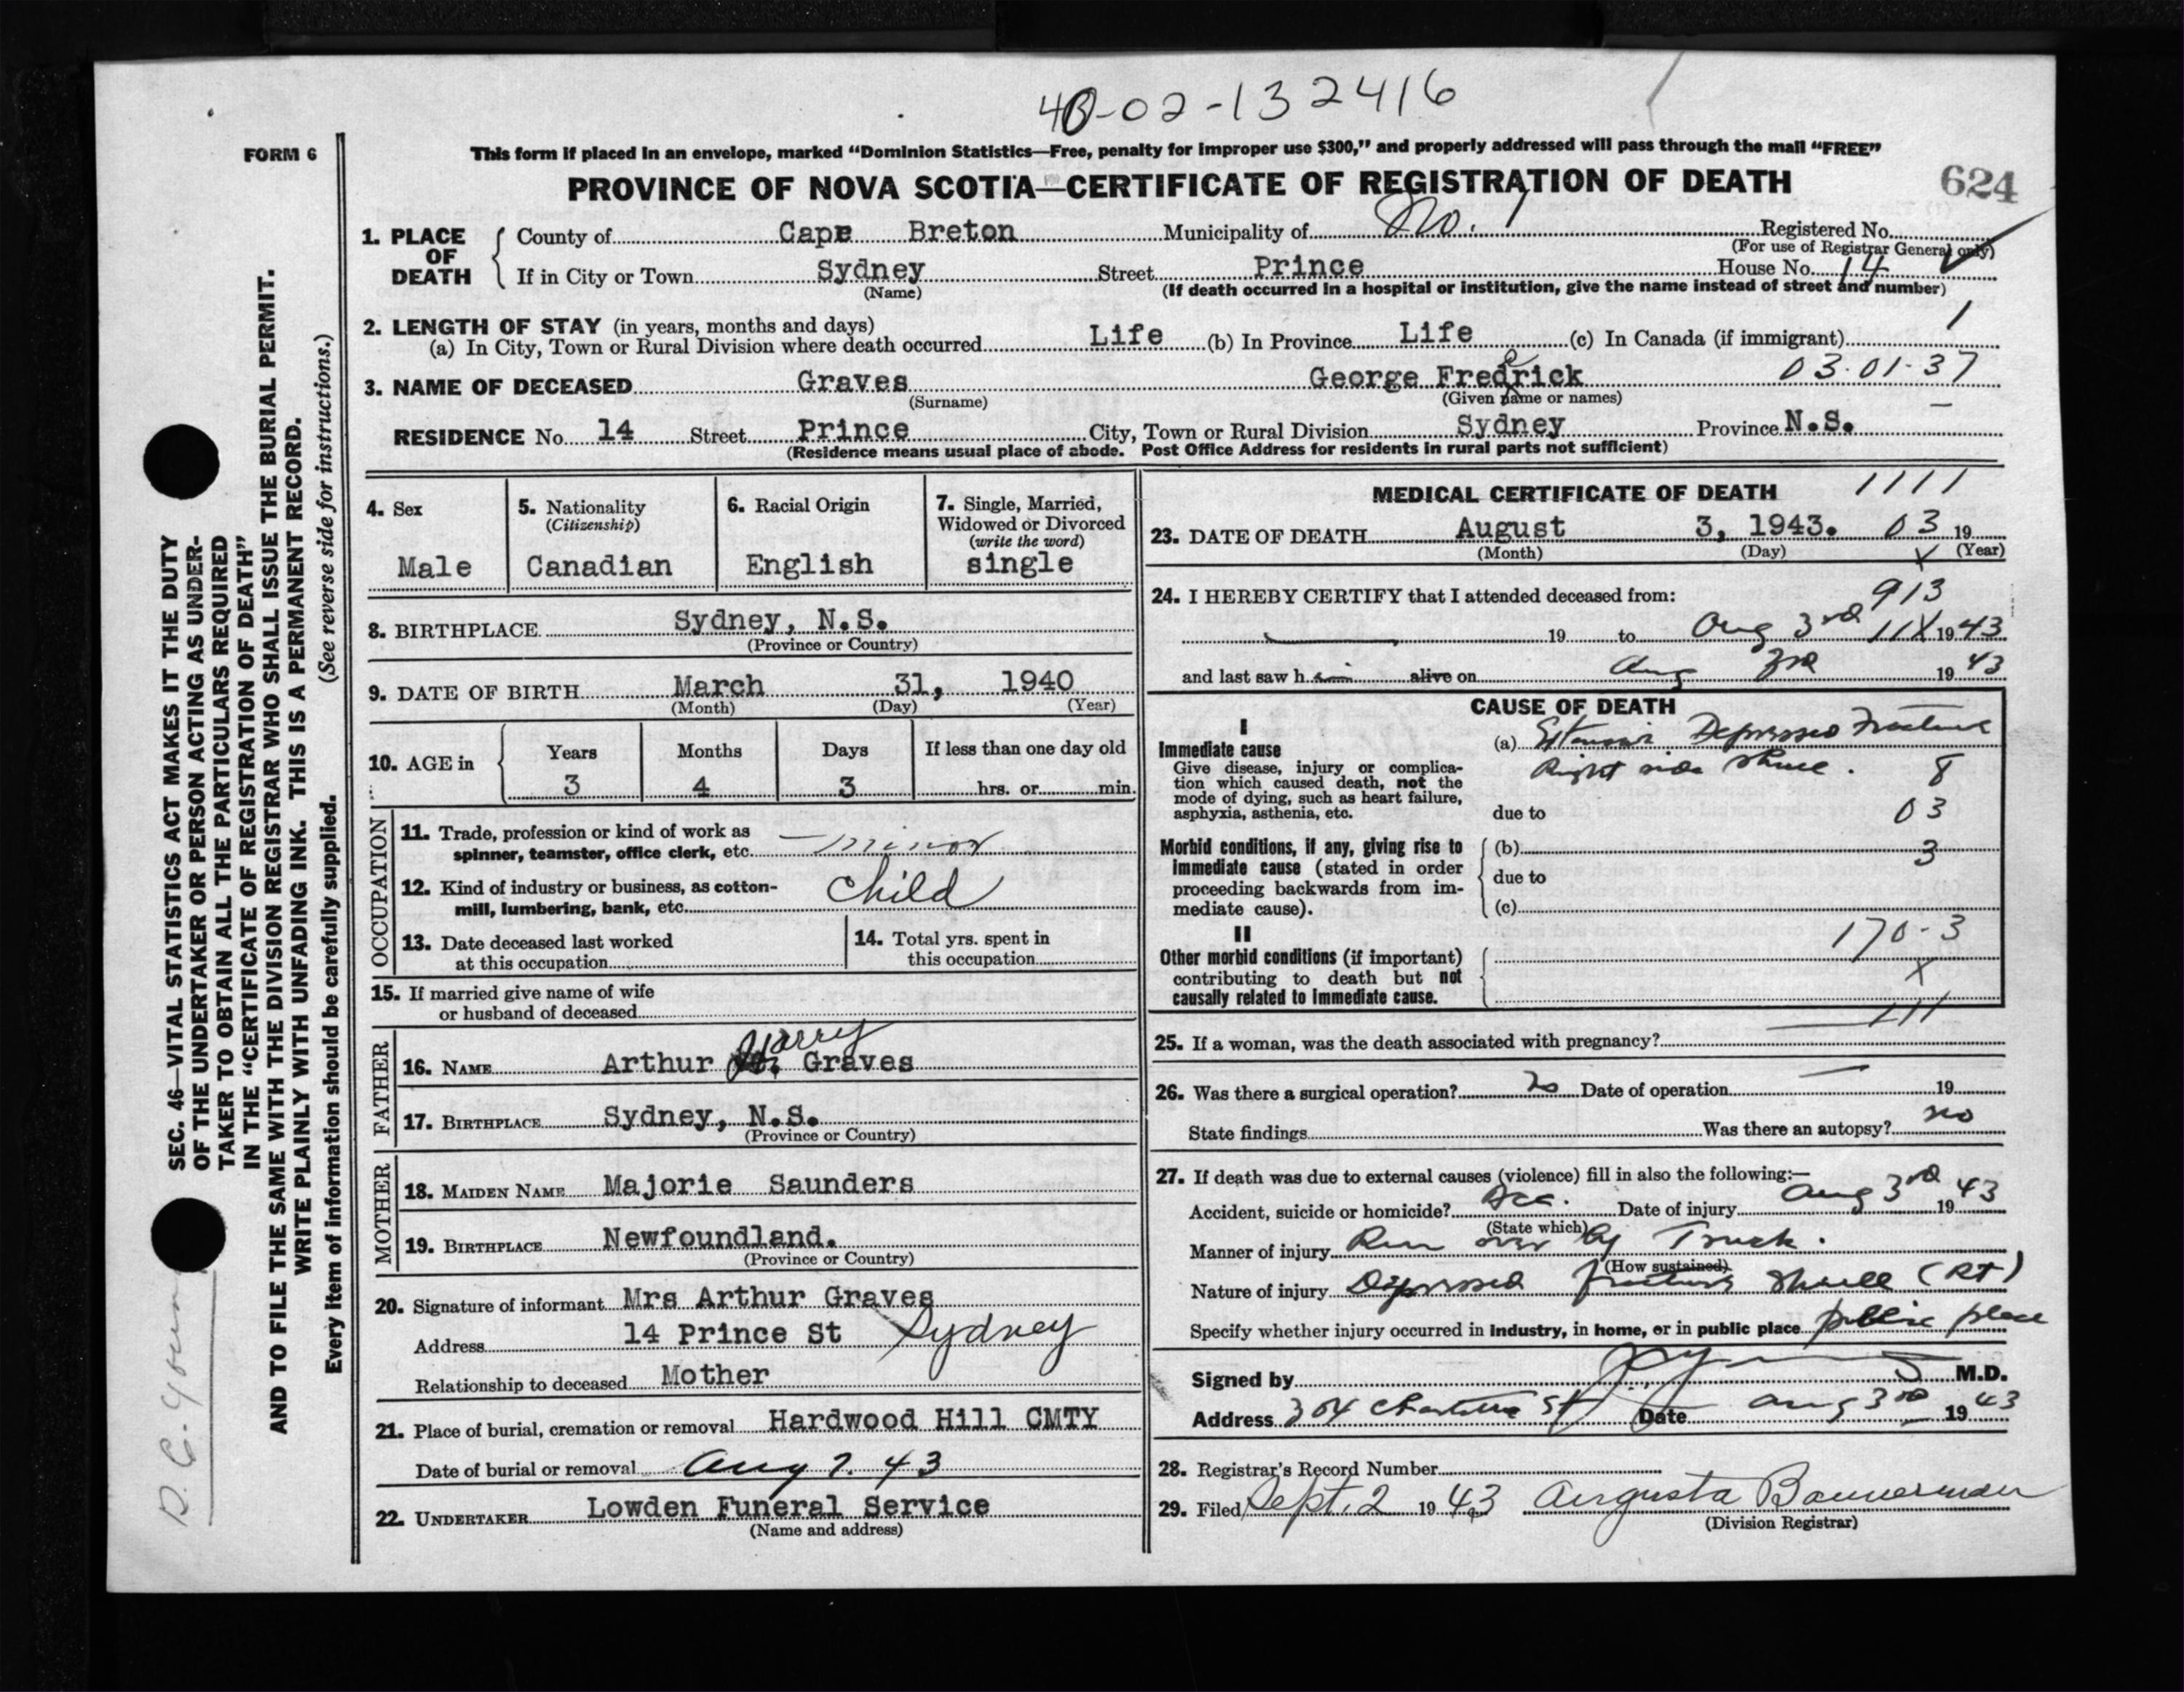 40-02-132416
FORM 6
This form if placed in an envelope, marked “Dominion Statistics—Free, penalty for improper use $300,” and properly addressed will pass through the mail “FREE”
PROVINCE OF NOVA SCOTIA—CERTIFICATE OF REGISTRATION OF DEATH
624
1. PLACE OF DEATH County of Cape Breton Municipality of No. 1 Registered No.
(For use of Registrar General only)
If in City or Town Sydney Street Prince House No. 14
(Name) (If death occurred in a hospital or institution, give the name instead of street and number)
2. LENGTH OF STAY (in years, months and days) 1
(a) In City, Town or Rural Division where death occurred Life (b) In Province Life (c) In Canada (if immigrant)
3. NAME OF DECEASED Graves George Fredrick e 03-01-37
(Surname) (Given name or names)
RESIDENCE No. 14 Street Prince City, Town or Rural Division Sydney Province N.S.
(Residence means usual place of abode. Post Office Address for residents in rural parts not sufficient)
4. Sex
Male
5. Nationality
(Citizenship)
Canadian
6. Racial Origin
English
7. Single, Married,
Widowed or Divorced
(write the word)
single
8. BIRTHPLACE Sydney, N.S.
(Province or Country)
9. DATE OF BIRTH March 31, 1940
(Month) (Day) (Year)
10. AGE in Years Months Days If less than one day old
3 4 3 hrs. or min.
OCCUPATION
11. Trade, profession or kind of work as
spinner, teamster, office clerk, etc. minor
12. Kind of industry or business, as cotton-
mill, lumbering, bank, etc. Child
13. Date deceased last worked
at this occupation
14. Total yrs. spent in
this occupation
15. If married give name of wife
or husband of deceased
FATHER
16. NAME Arthur Harry Graves
17. BIRTHPLACE Sydney, N.S.
(Province or Country)
MOTHER
18. MAIDEN NAME Majorie Saunders
19. BIRTHPLACE Newfoundland.
(Province or Country)
20. Signature of informant Mrs Arthur Graves
Address 14 Prince St Sydney
Relationship to deceased Mother
21. Place of burial, cremation or removal Hardwood Hill CMTY
Date of burial or removal Aug 7. 43
22. UNDERTAKER Lowden Funeral Service
(Name and address)
MEDICAL CERTIFICATE OF DEATH 1111
23. DATE OF DEATH August 3, 1943. 03 19
(Month) (Day) X (Year)
24. I HEREBY CERTIFY that I attended deceased from: 913
19 to Aug 3rd 11X 1943
and last saw him alive on Aug 3rd 1943
CAUSE OF DEATH
I
Immediate cause
Give disease, injury or complica-
tion which caused death, not the
mode of dying, such as heart failure,
asphyxia, asthenia, etc.
(a) Extensive Depressed Fracture
Right side Skull. 8
due to 03
Morbid conditions, if any, giving rise to
immediate cause (stated in order
proceeding backwards from im-
mediate cause).
(b) 3
due to
(c)
II
Other morbid conditions (if important)
contributing to death but not
causally related to immediate cause.
170-3
X
111
25. If a woman, was the death associated with pregnancy?
26. Was there a surgical operation? no Date of operation — 19
State findings Was there an autopsy? no
27. If death was due to external causes (violence) fill in also the following:—
Accident, suicide or homicide? Acc. Date of injury Aug 3rd 1943
(State which)
Manner of injury Run over by Truck.
(How sustained)
Nature of injury Depressed fracture Skull (RT)
Specify whether injury occurred in industry, in home, or in public place public place
Signed by M.D.
Address 304 Charlotte St Date Aug 3rd 1943
28. Registrar's Record Number
29. Filed Sept. 2 1943 Augusta
(Division Registrar)
SEC. 46—VITAL STATISTICS ACT MAKES IT THE DUTY
OF THE UNDERTAKER OR PERSON ACTING AS UNDER-
TAKER TO OBTAIN ALL THE PARTICULARS REQUIRED
IN THE “CERTIFICATE OF REGISTRATION OF DEATH”
AND TO FILE THE SAME WITH THE DIVISION REGISTRAR WHO SHALL ISSUE THE BURIAL PERMIT.
WRITE PLAINLY WITH UNFADING INK. THIS IS A PERMANENT RECORD.
Every item of information should be carefully supplied. (See reverse side for instructions.)